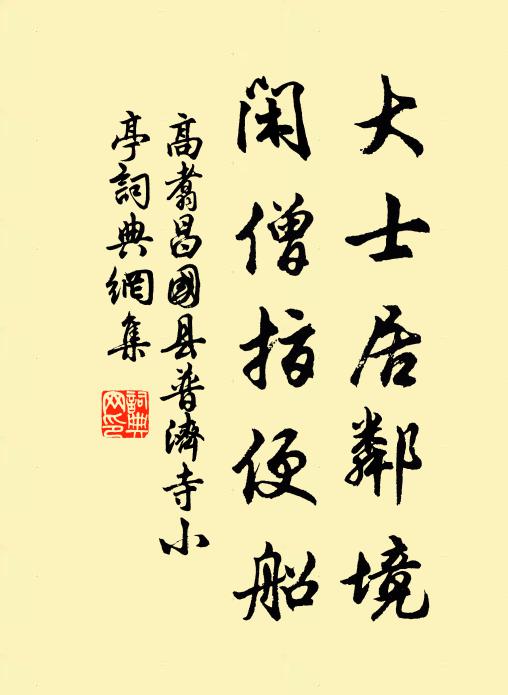 大士居鄰境
閑僧指便船
高翥昌國县普濟寺小
亭詞典網集
詞典
网印